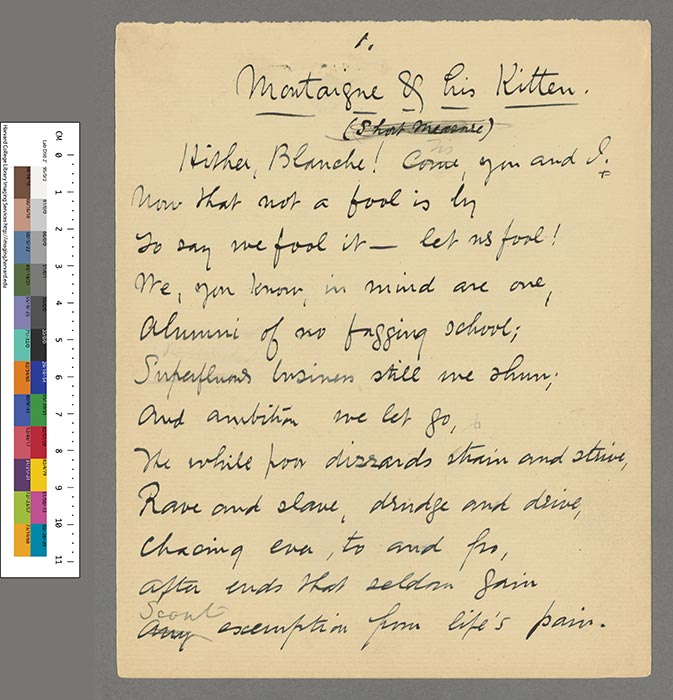 1.
Montaigne & his Kitten.
(Short Measure)
Hither, Blanche! Come, you and I.
Now that not a fool is by
To say we fool it — let us fool!
We, you know, in mind are one,
Alumni of no fagging school;
Superfluous business still we shun;
And ambition we let go,
The while poor dizzards strain and strive,
Rave and slave, drudge and drive,
Chacing ever, to and fro,
After ends that seldom gain
Scant
any exemption from life's pain.
CM 0 1 2 3 4 5 6 7 8 9 10 11
Harvard College Library Imaging Services http://imaging.harvard.edu